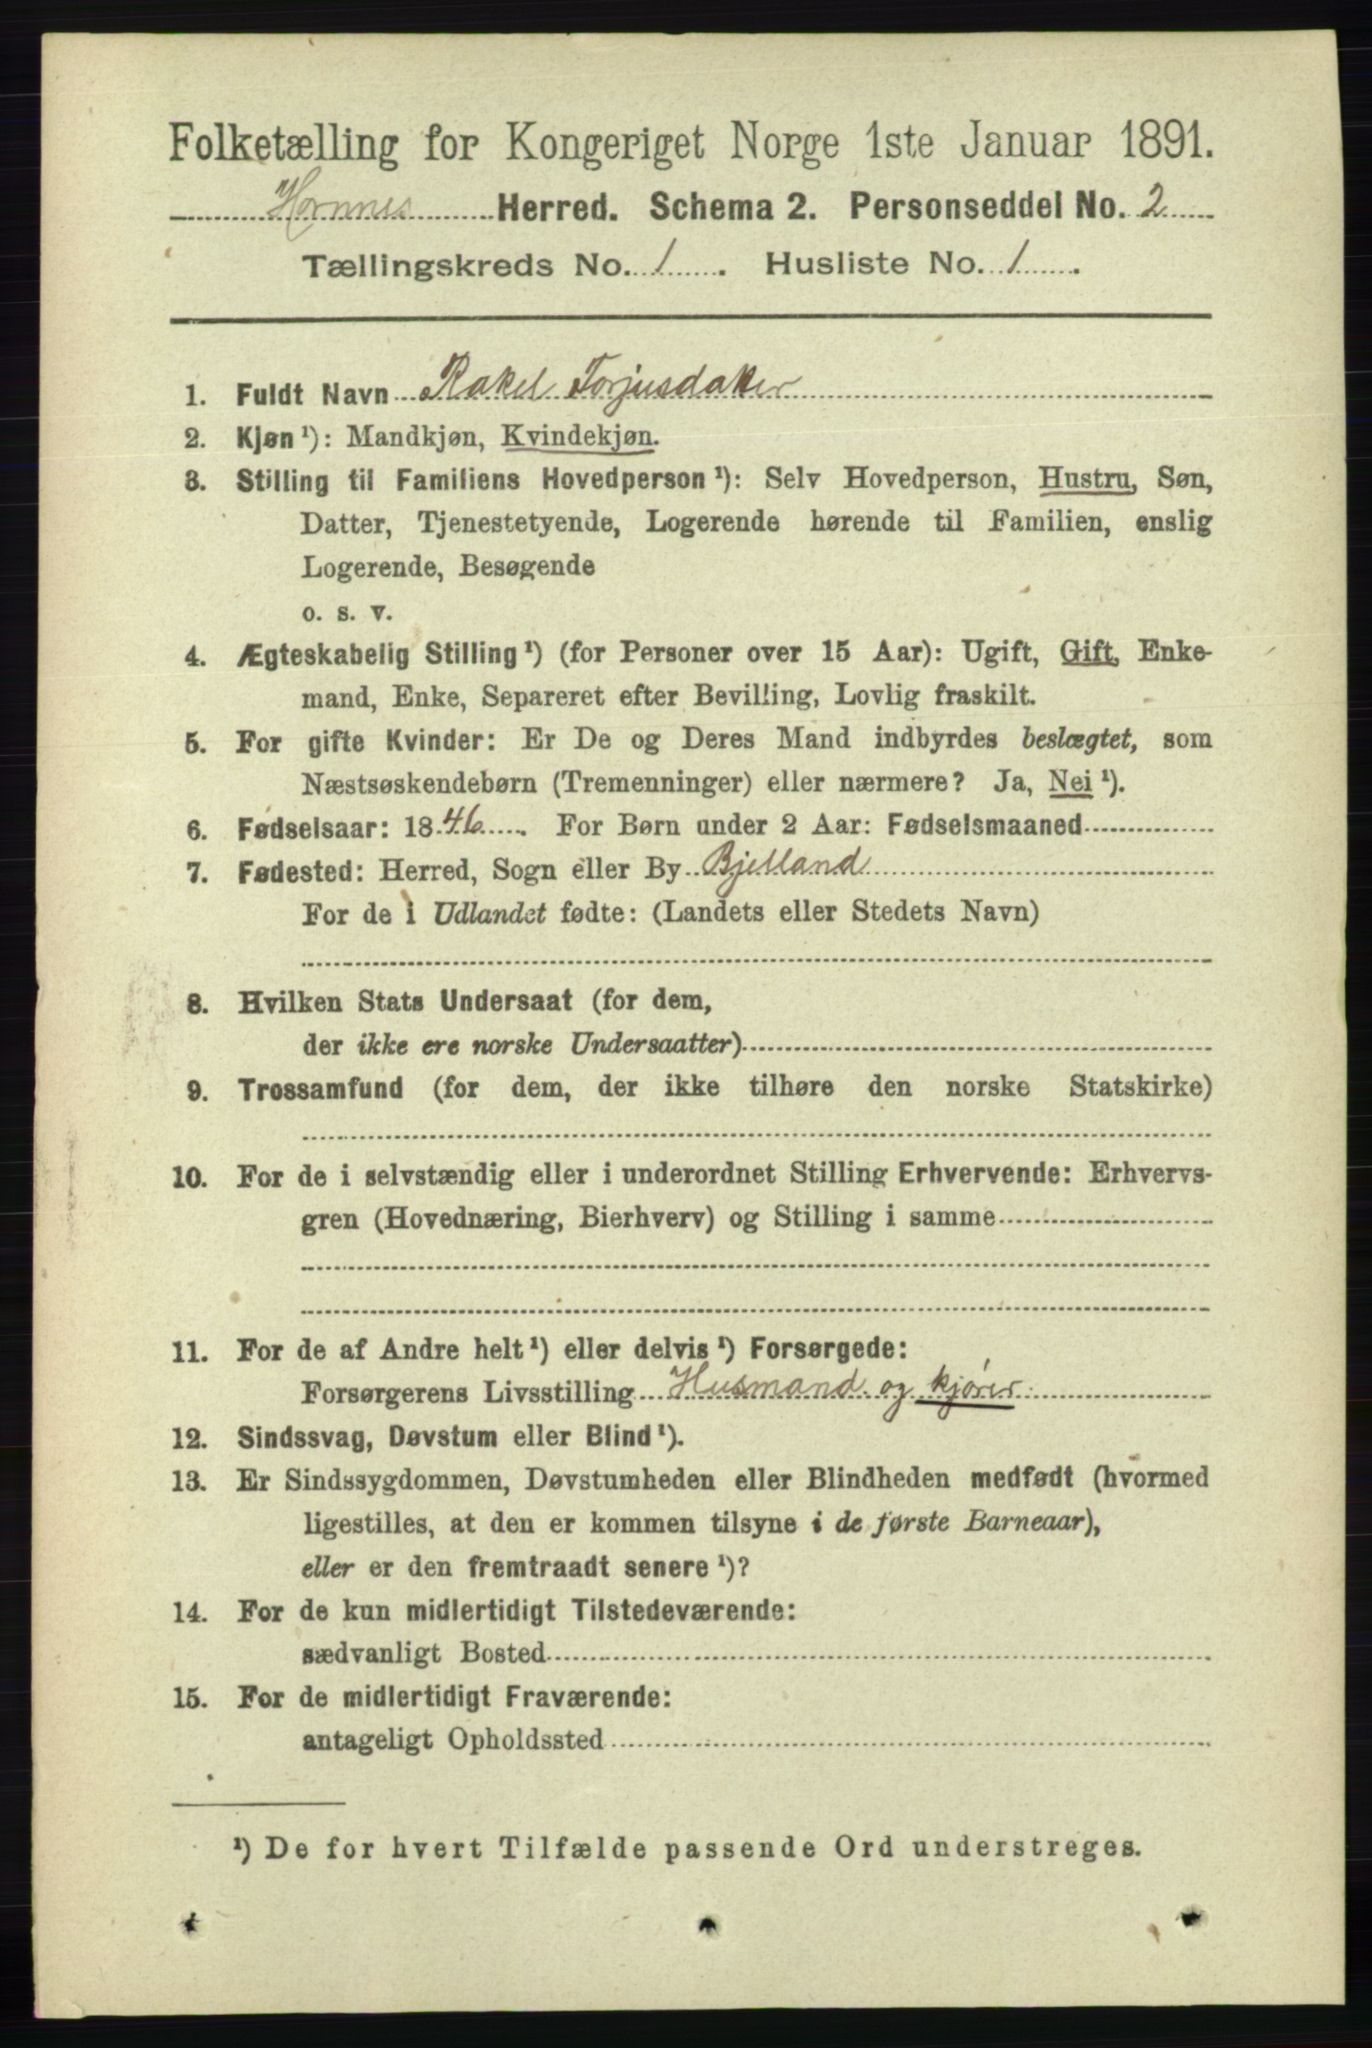 Folketælling for Kongeriget Norge 1ste Januar 1891.
Hornnes Herred. Schema 2. Personseddel No. 2
Tællingskreds No. 1. Husliste No. 1.
1. Fuldt Navn Rakel Torjusdatter
2. Kjøn ¹): Mandkjøn, Kvindekjøn.
3. Stilling til Familiens Hovedperson ¹): Selv Hovedperson, Hustru, Søn,
Datter, Tjenestetyende, Logerende hørende til Familien, enslig
Logerende, Besøgende
o. s. v.
4. Ægteskabelig Stilling ¹) (for Personer over 15 Aar): Ugift, Gift, Enke-
mand, Enke, Separeret efter Bevilling, Lovlig fraskilt.
5. For gifte Kvinder: Er De og Deres Mand indbyrdes beslægtet, som
Næstsøskendebørn (Tremenninger) eller nærmere? Ja, Nei ¹).
6. Fødselsaar: 1846. For Børn under 2 Aar: Fødselsmaaned
7. Fødested: Herred, Sogn eller By Bjelland
For de i Udlandet fødte: (Landets eller Stedets Navn)
8. Hvilken Stats Undersaat (for dem,
der ikke ere norske Undersaatter)
9. Trossamfund (for dem, der ikke tilhøre den norske Statskirke)
10. For de i selvstændig eller i underordnet Stilling Erhvervende: Erhvervs-
gren (Hovednæring, Bierhverv) og Stilling i samme
11. For de af Andre helt ¹) eller delvis ¹) Forsørgede:
Forsørgerens Livsstilling Husmand og kjører
12. Sindssvag, Døvstum eller Blind ¹).
13. Er Sindssygdommen, Døvstumheden eller Blindheden medfødt (hvormed
ligestilles, at den er kommen tilsyne i de første Barneaar),
eller er den fremtraadt senere ¹)?
14. For de kun midlertidigt Tilstedeværende:
sædvanligt Bosted
15. For de midlertidigt Fraværende:
antageligt Opholdssted
¹) De for hvert Tilfælde passende Ord understreges.